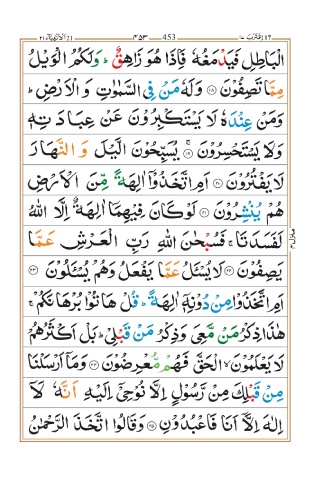 اقترب ١٧ 453 ٤٥٣ الانبيآء ٢١
الۡبَاطِلِ فَيَدۡمَغُهٗ فَاِذَا هُوَ زَاهِقٌ‌ ؕ وَلَـكُمُ الۡوَيۡلُ
مِمَّا تَصِفُوۡنَ‏ ﴿۱۸﴾ وَلَهٗ مَنۡ فِى السَّمٰوٰتِ وَالۡاَرۡضِ‌ؕ
وَمَنۡ عِنۡدَهٗ لَا يَسۡتَكۡبِرُوۡنَ عَنۡ عِبَادَتِهٖ
وَلَا يَسۡتَحۡسِرُوۡنَ‌ۚ‏ ﴿۱۹﴾ يُسَبِّحُوۡنَ الَّيۡلَ وَالنَّهَارَ
لَا يَفۡتُرُوۡنَ‏ ﴿۲۰﴾ اَمِ اتَّخَذُوۡۤا اٰلِهَةً مِّنَ الۡاَرۡضِ
هُمۡ يُنۡشِرُوۡنَ‏ ﴿۲۱﴾ لَوۡ كَانَ فِيۡهِمَاۤ اٰلِهَةٌ اِلَّا اللّٰهُ
لَـفَسَدَتَا‌ۚ فَسُبۡحٰنَ اللّٰهِ رَبِّ الۡعَرۡشِ عَمَّا
يَصِفُوۡنَ‏ ﴿۲۲﴾ لَا يُسۡئَلُ عَمَّا يَفۡعَلُ وَهُمۡ يُسۡئَلُوۡنَ‏ ﴿۲۳﴾
اَمِ اتَّخَذُوۡا مِنۡ دُوۡنِهٖۤ اٰلِهَةً ‌ ؕ قُلۡ هَاتُوۡا بُرۡهَانَكُمۡ‌ ۚ
هٰذَا ذِكۡرُ مَنۡ مَّعِىَ وَذِكۡرُ مَنۡ قَبۡلِىۡ‌ ؕ بَلۡ اَكۡثَرُهُمۡ
لَا يَعۡلَمُوۡنَۙ الۡحَـقَّ‌ فَهُمۡ مُّعۡرِضُوۡنَ‏ ﴿۲۴﴾ وَمَاۤ اَرۡسَلۡنَا
مِنۡ قَبۡلِكَ مِنۡ رَّسُوۡلٍ اِلَّا نُوۡحِىۡۤ اِلَيۡهِ اَنَّهٗ لَاۤ
اِلٰهَ اِلَّاۤ اَنَا فَاعۡبُدُوۡنِ‏ ﴿۲۵﴾ وَقَالُوا اتَّخَذَ الرَّحۡمٰنُ